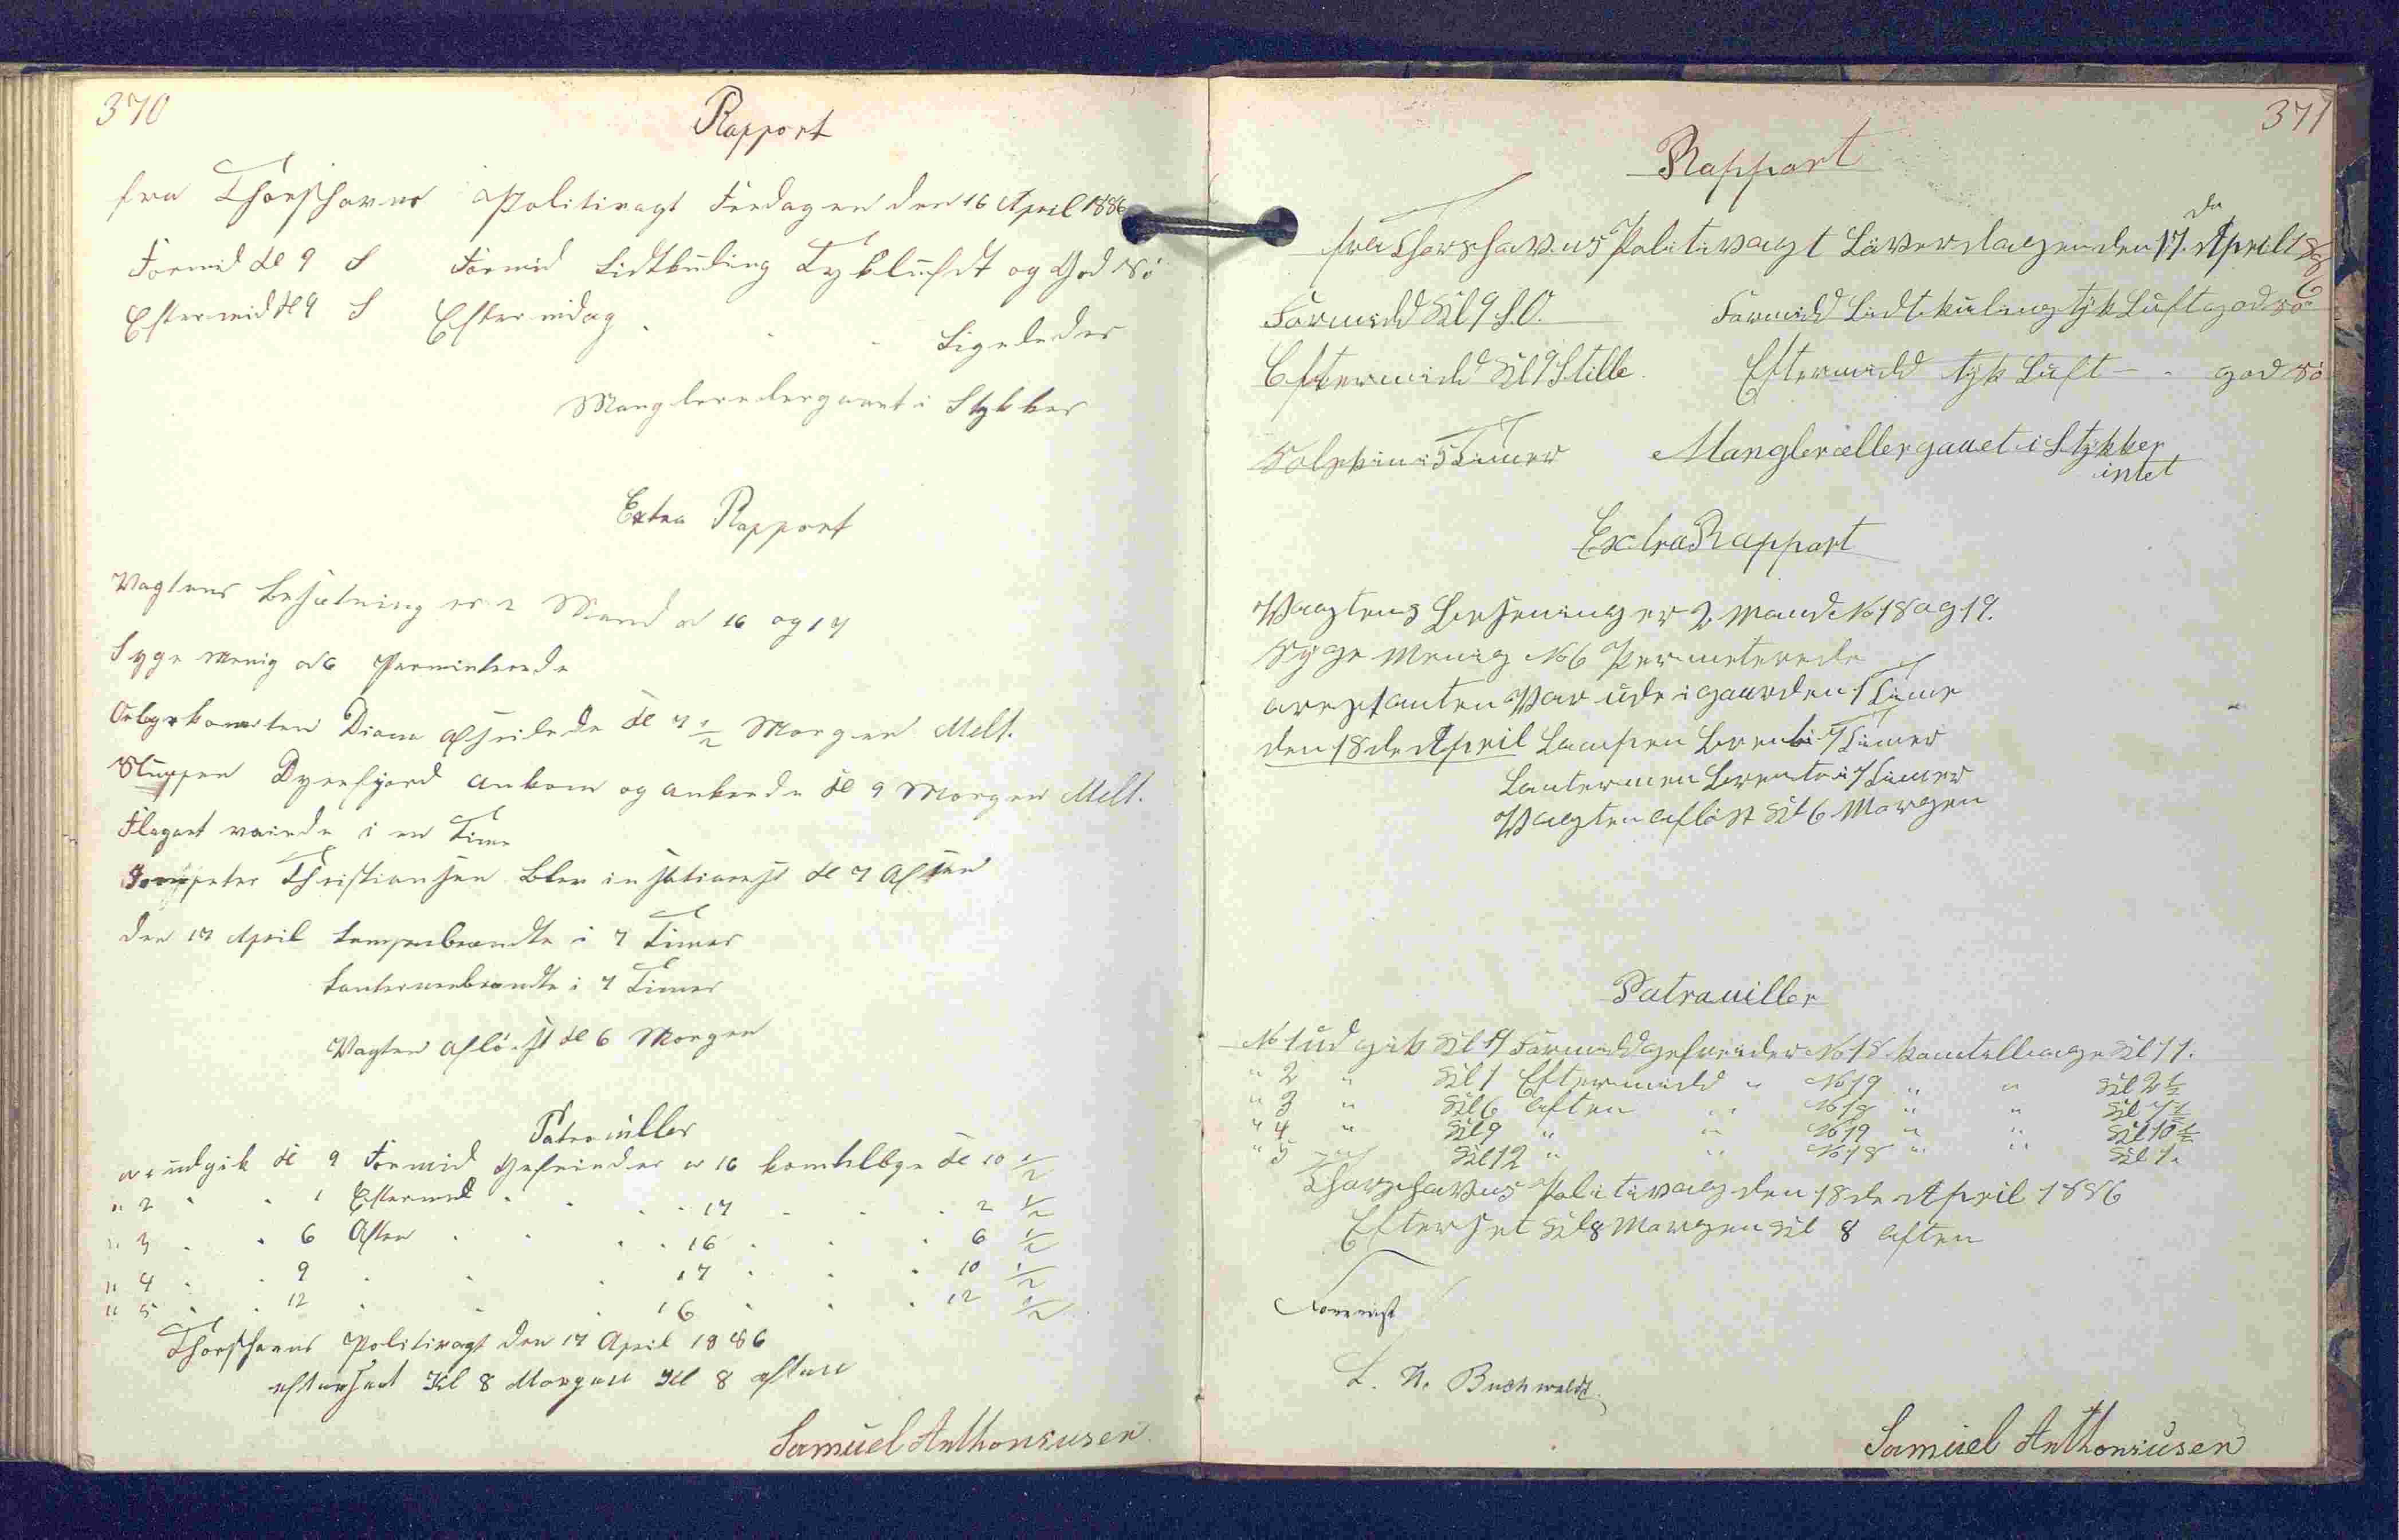 370
Rapport
fra Thorshavns Politivagt Fredagen den 16 April 1886
Formid Kl 9 S Formid Lidtkuling Tykluft og God Sö
Eftermid Kl 9 S Eftermidag " " " Ligeledes
Mangler eler gaaet i Stykker
Extra Rapport
Vagtens Besætning er 2 Mand No 16 og 17
Syge Menig No 6 Permiterede
Orlogskonerten Diana afseilede Kl 7 1/2 Morgen Melt.
Sluppen Dyrefjord ankom og ankrede Kl 9 Morgen Melt.
Flaget vaiede i en Time
Christiansen blev Kl 7 Aften
den 17 April Lampenbrændte i 7 Timer
Lanternenbrændte i 7 Timer
Vagten aflöst Kl 6 Morgen
Patrouiller
No 1 udgik Kl 9 Formid Gefreider No 16 komtilbge Kl 10 1/2
" 2 " " 1 Eftermid " " " 17 " " " 2 1/2
" 3 " " 6 Aften " " " 16 " " " 6 1/2
" 4 " " 9 " " " 17 " " " 10 1/2
" 5 " " 12 " " " 16 " " " 12 1/2
Thorshavns Politivagt den 17 April 1886
efterseet Kl 8 Morgen Kl 8 aften
Samuel Anthoniusen
371
Rapport
fra Thorshavns Politivagt Löverdagen den 17. de April 1886
Formidd Kl 9 S.O. Formidd Lidt kuling tyk Luft god sö
Eftermidd Kl 9 Stille Eftermidd tyk Luft - " god sö
Solskin i 5 Timer Mangler eller gaaet i Stykker
intet
Extra Rapport
Vagtens Besetning er 2 Mand No 18 og 19.
Syge Menig No 6 Permeterede
arestanten Var ude i gaarden 1 Time
den 18 de April Lampen Brente 7 Timer
Lanternen Brente i 7 Timer
Vagten aflöst Kl 6 Morgen
Patrouiller
No 1 udgik Kl 9 Formidd gefreider No 18 komtilbage Kl 11.
" 2 " Kl 1 Eftermidd " No 19 " " Kl 2 1/2
" 3 " Kl 6 aften " " No 18 " " Kl 7 1/2
" 4 " Kl 9 " " No 19 " " Kl 10 1/2
" 5 Kl 12 " " No 18 " " Kl 1.
Thorshavns Politivagt den 18 de April 1886
Efterset Kl 8 Morgen Kl 8 aften
Forevist
L. N. Buchwaldt
Samuel Anthoniusen